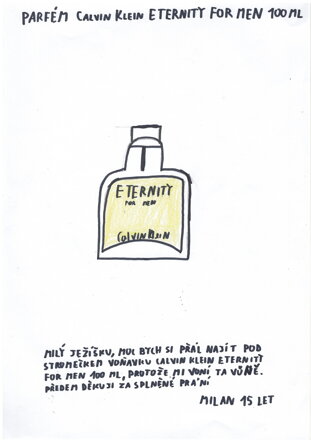 PARFÉM CALVIN KLEIN ETERNITY FOR MEN 100 ML
ETERNITY
FOR MEN
CALVIN KLEIN
MILÝ JEŽÍŠKU, MOC BYCH SI PŘÁL NAJÍT POD
STROMEČKEM VOŇAVKU CALVIN KLEIN ETERNITY
FOR MEN 100 ML, PROTOŽE MI VONÍ TA VŮNĚ.
PŘEDEM DĚKUJI ZA SPLNĚNÉ PŘÁNÍ
MILAN 15 LET